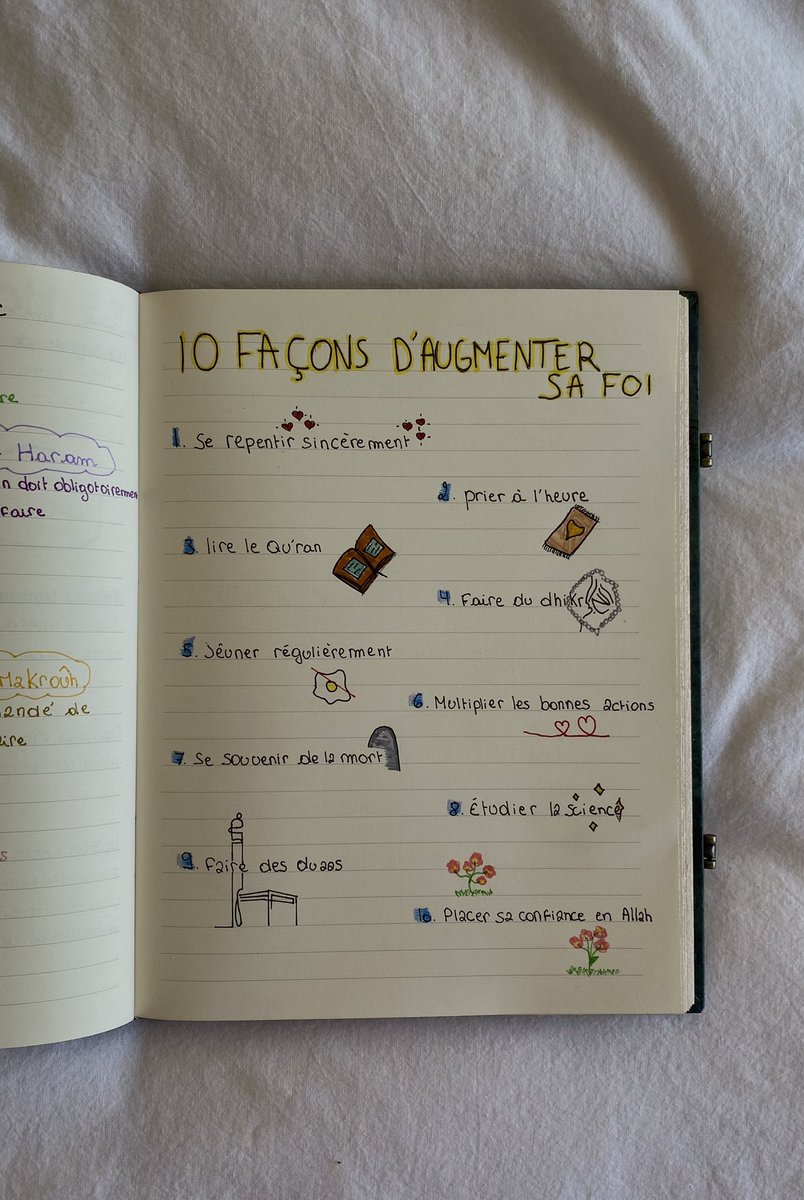 re
Haram
n doit obligatoirement
faire
Makroûh
andé de
ire
s
10 FAÇONS D'AUGMENTER
SA FOI
1. Se repentir sincèrement
2. prier à l'heure
3. lire le Qu'ran
4. Faire du dhikr
5. Jêuner régulièrement
6. Multiplier les bonnes actions
7. Se souvenir de la mort
8. Étudier la science
9. Faire des duaas
10. Placer sa confiance en Allah